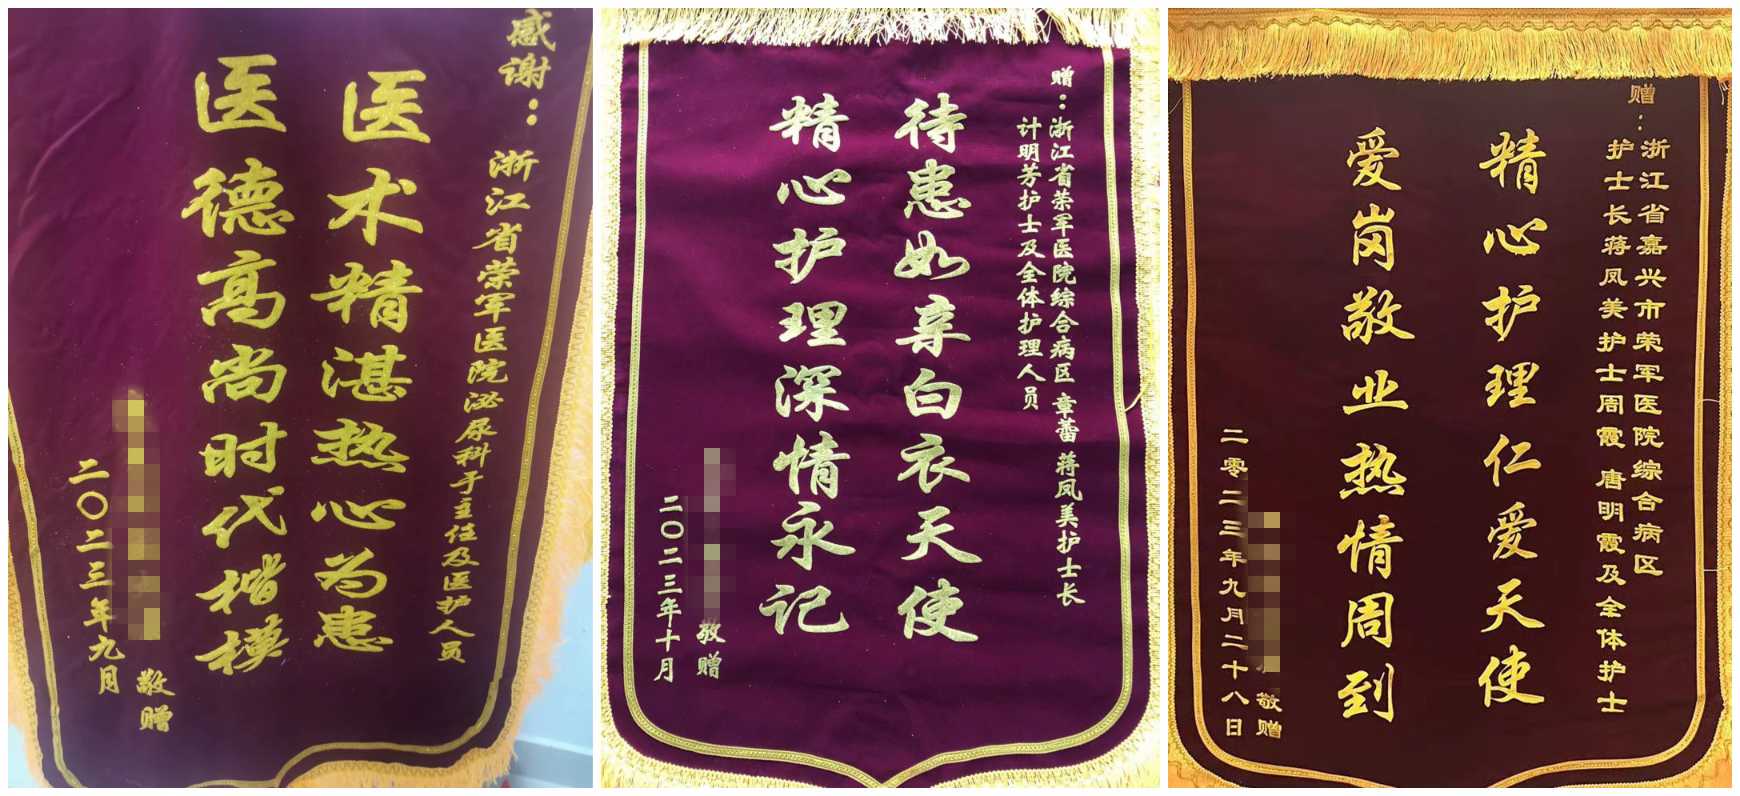 感谢：浙江省荣军医院泌尿科于主任及医护人员
医术精湛热心为患
医德高尚时代楷模
敬赠
二〇二三年九月
赠：浙江省荣军医院综合病区 章蕾 蒋凤美护士长
计明芳护士及全体护理人员
待患如亲白衣天使
精心护理深情永记
敬赠
二〇二三年十月
赠：浙江省嘉兴市荣军医院综合病区
护士长蒋凤美护士周霞 唐明霞及全体护士
精心护理仁爱天使
爱岗敬业热情周到
敬赠
二零二三年九月二十八日